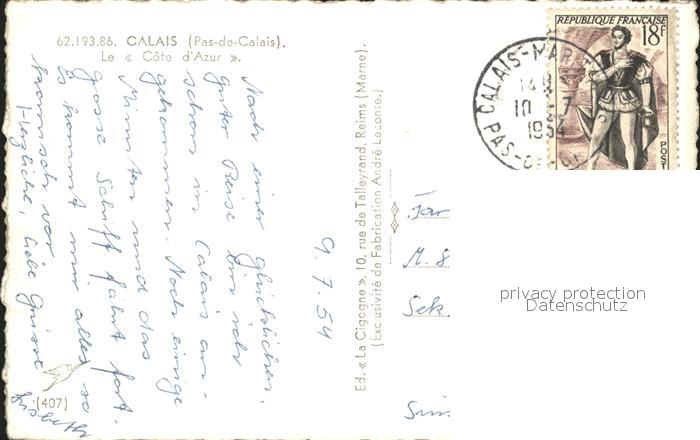 62.193.86. CALAIS (Pas-de-Calais).
Le « Côte d'Azur ».
REPUBLIQUE FRANÇAISE
18F
POST
CALAIS-MAR
14H
10-7
1954
PAS-DE-C
9.7.54
Nach einer glücklichen,
guten Reise bin ich
schon in Calais an-
gekommen. Noch einige
Minuten und das
grosse Schiff fährt fort.
Es kommt mir alles so
komisch vor.
Herzliche, liebe Grüsse
Lisbeth
(407)
Ed. « La Cigogne », 10, rue de Talleyrand, Reims (Marne).
(Exclusivité de Fabrication André Leconte.)
Fam
M. S
Sek
privacy protection
Datenschutz